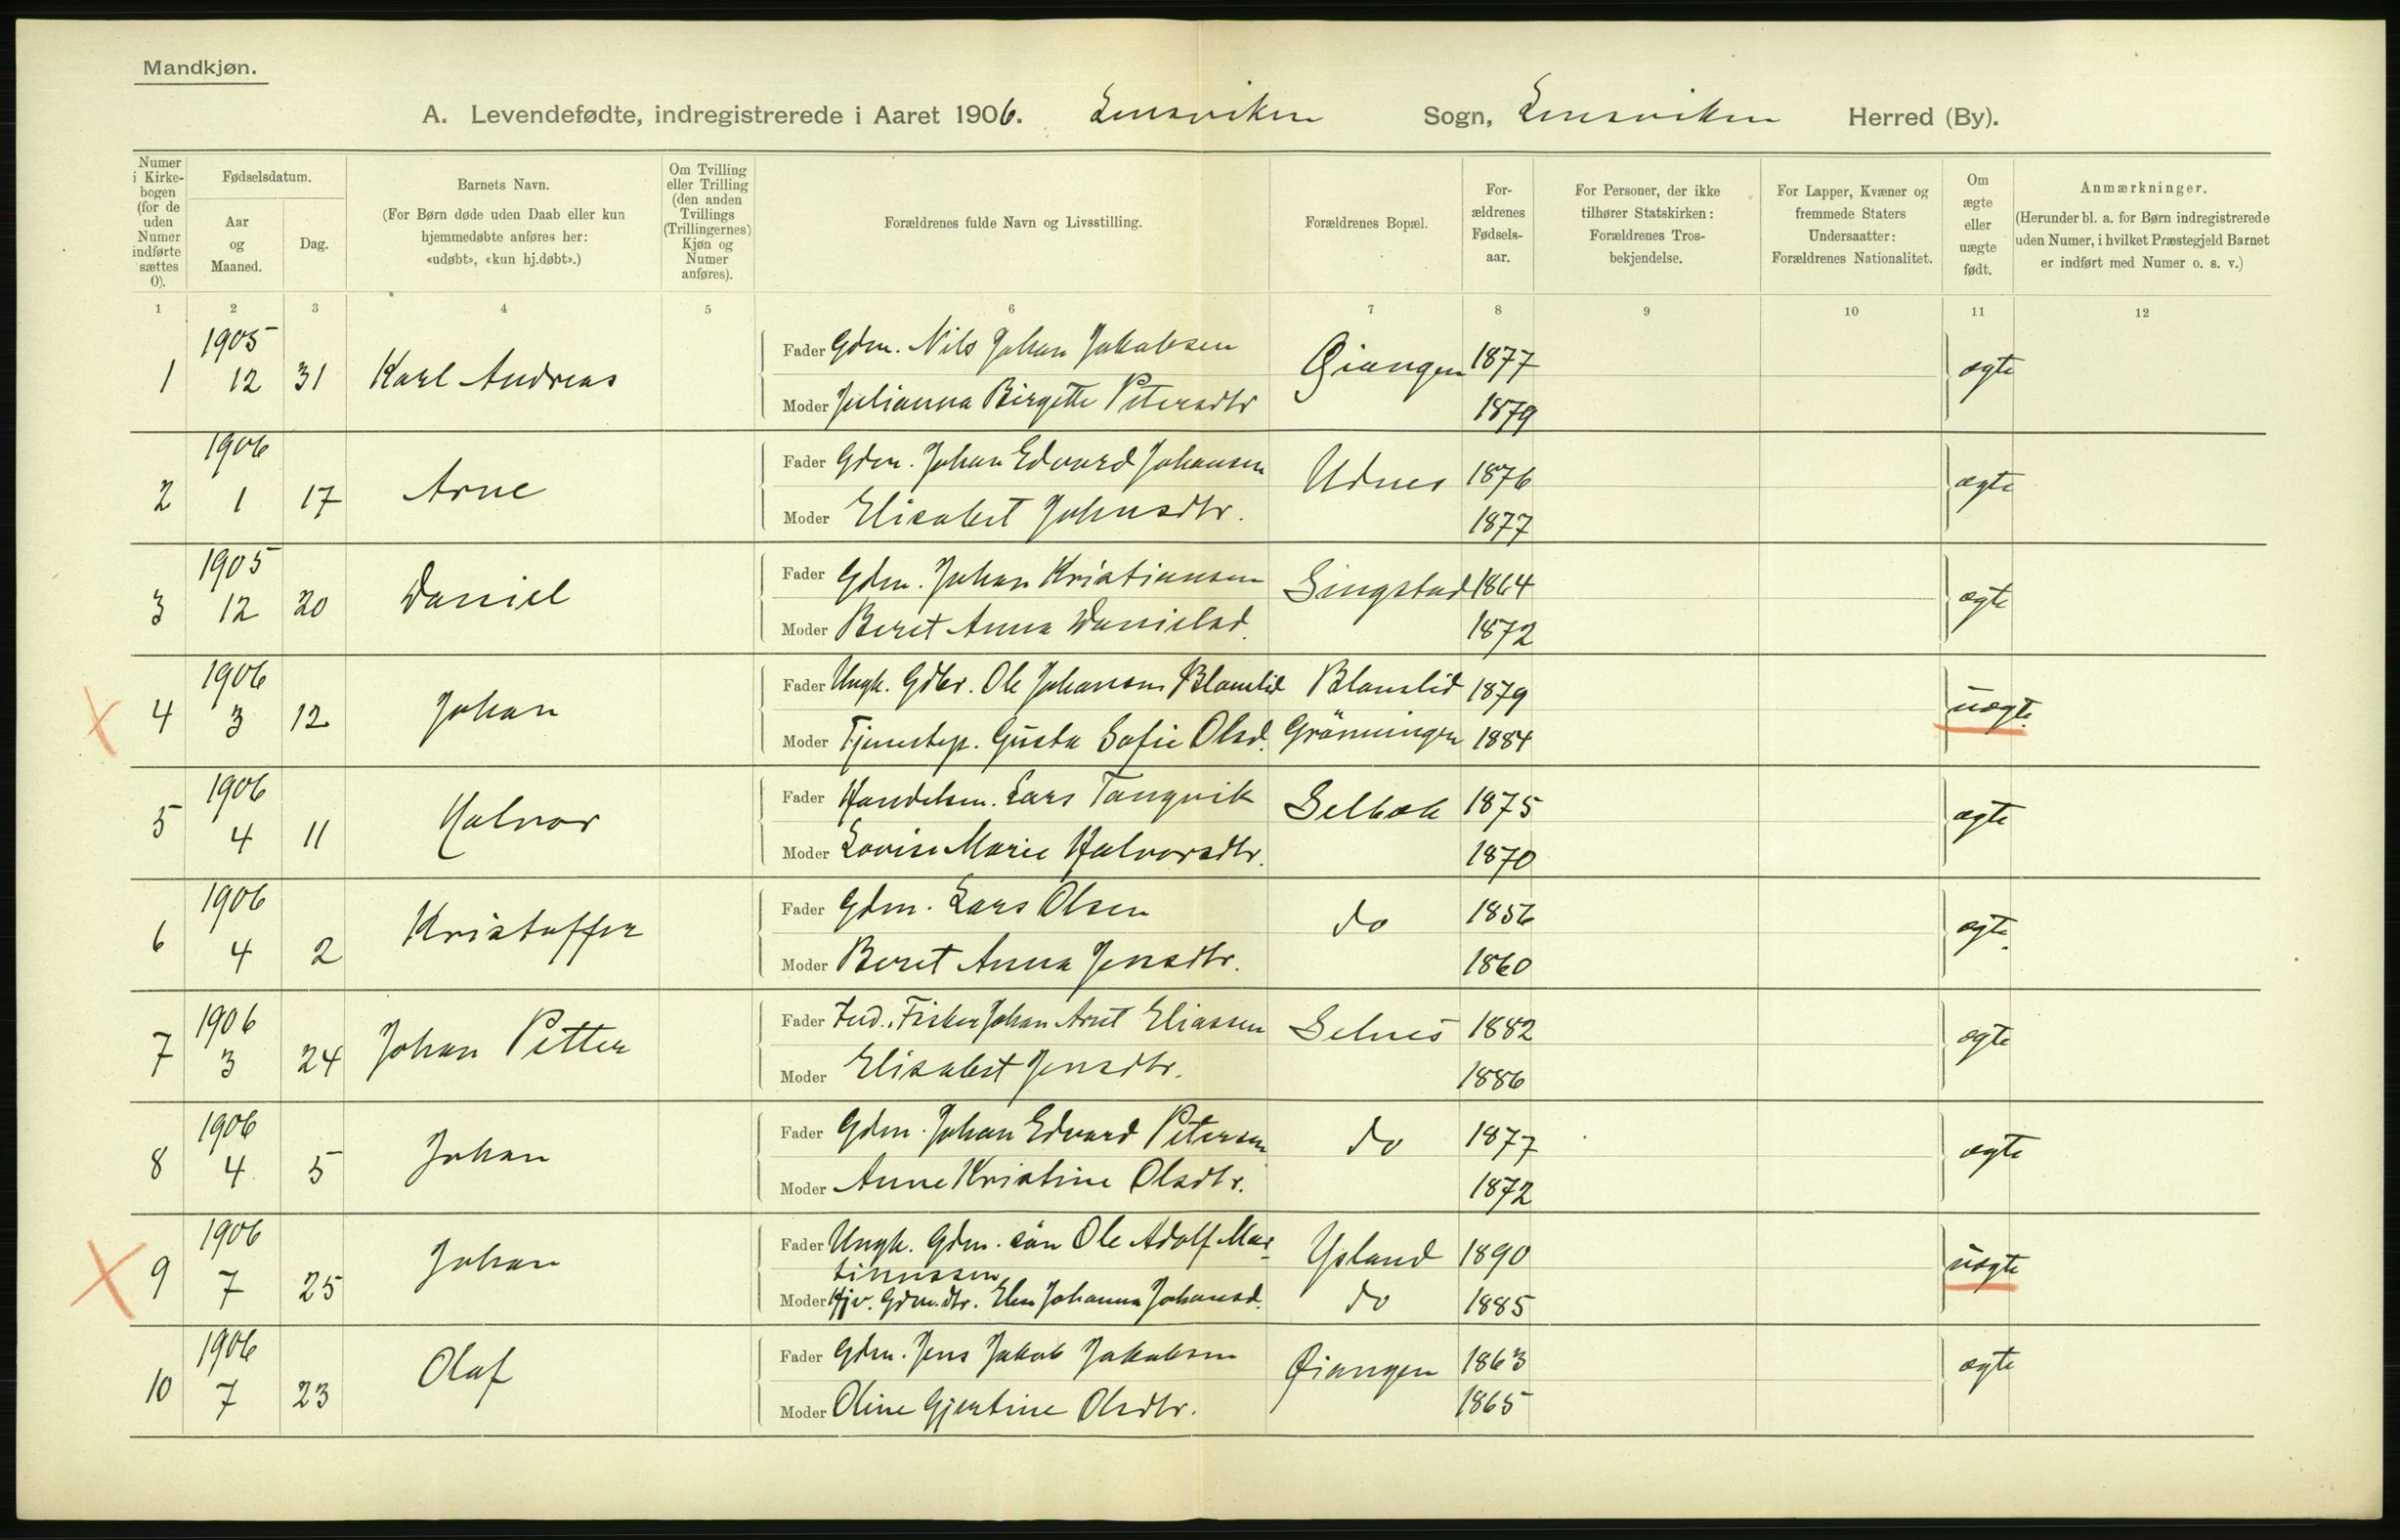 Mandkjøn.
A. Levendefødte, indregistrerede i Aaret 1906. Lensviken Sogn, Lensviken Herred (By).
Numer i Kirkebogen (for de uden Numer indførte sættes 0).
Fødselsdatum.
Aar og Maaned.
Dag.
Barnets Navn.
(For Børn døde uden Daab eller kun hjemmedøbte anføres her: «udøbt», «kun hj.døbt».)
Om Tvilling eller Trilling (den anden Tvillings (Trillingernes) Kjøn og Numer anføres).
Forældrenes fulde Navn og Livsstilling.
Forældrenes Bopæl.
Forældrenes Fødselsaar.
For Personer, der ikke tilhører Statskirken: Forældrenes Trosbekjendelse.
For Lapper, Kvæner og fremmede Staters Undersaatter: Forældrenes Nationalitet.
Om ægte eller uægte født.
Anmærkninger.
(Herunder bl. a. for Børn indregistrerede uden Numer, i hvilket Præstegjeld Barnet er indført med Numer o. s. v.)
1 2 3 4 5 6 7 8 9 10 11 12
1905
1 12 31 Karl Andreas Fader Gdm. Nils Johan Jakobsen Øiangen 1877 ægte
Moder Julianna Birgitte Petersdtr 1879
1906
2 1 17 Arne Fader Gdm. Johan Edvard Johansen Udnes 1876 ægte
Moder Elisabet Johnsdtr. 1877
1905
3 12 20 Daniel Fader Gdm. Johan Kristiansen Singstad 1864 ægte
Moder Beret Anna Danielsd. 1872
1906
4 3 12 Johan Fader Ungk. Gdbr. Ole Johansen Blomlid Blomlid 1879 uægte
Moder Tjenestep. Gusta Sofie Olsd. Grönningen 1884
1906
5 4 11 Halvor Fader Handelsm. Lars Tangvik Selbæk 1875 ægte
Moder Lovise Marie Halvorsdtr. 1870
1906
6 4 2 Kristoffer Fader Gdm. Lars Olsen do 1856 ægte
Moder Beret Anna Jensdtr. 1860
1906
7 3 24 Johan Petter Fader Ind., Fisker Johan Arnt Eliassen Selnes 1882 ægte
Moder Elisabet Jensdtr. 1886
1906
8 4 5 Johan Fader Gdm. Johan Edvard Petersen do 1877 ægte
Moder Anne Kristine Olsdtr. 1872
1906
9 7 25 Johan Fader Ungk. Gdm. sön Ole Adolf Martinussen Ysland 1890 uægte
Moder Hjv. Gdm.dtr. Elen Johanna Johansd. do 1885
1906
10 7 23 Olaf Fader Gdm. Jens Jakob Jakobsen Øiangen 1863 ægte
Moder Oline Gjertine Olsdtr. 1865